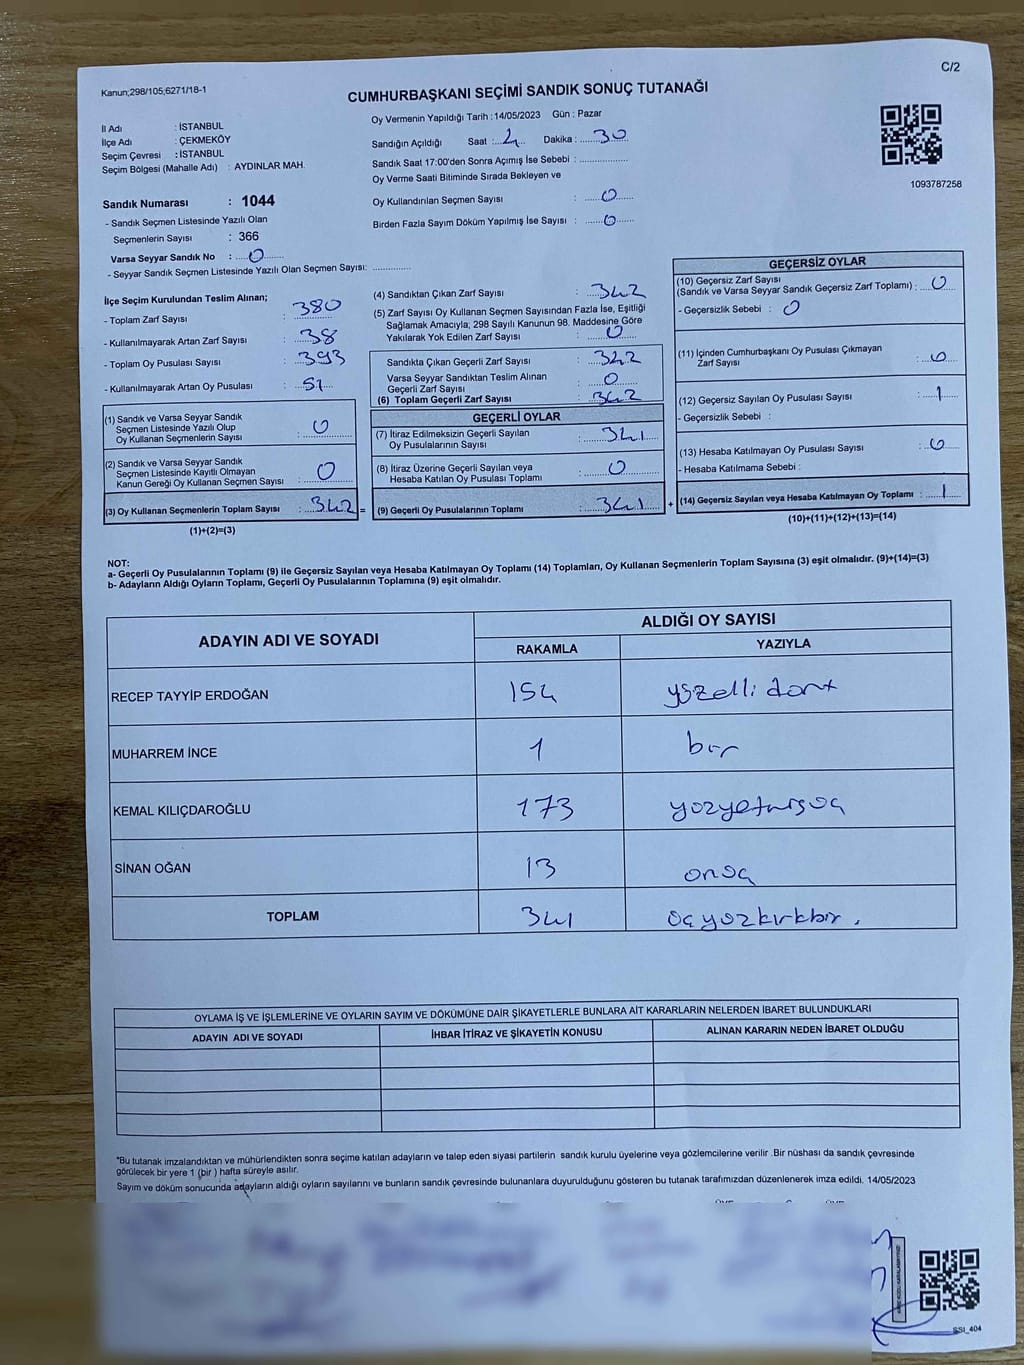 C/2
Kanun;298/105;6271/18-1
CUMHURBAŞKANI SEÇİMİ SANDIK SONUÇ TUTANAĞI
1093787258
İl Adı : İSTANBUL
İlçe Adı : ÇEKMEKÖY
Seçim Çevresi : İSTANBUL
Seçim Bölgesi (Mahalle Adı) : AYDINLAR MAH.
Sandık Numarası : 1044
- Sandık Seçmen Listesinde Yazılı Olan
Seçmenlerin Sayısı : 366
Varsa Seyyar Sandık No : 0
- Seyyar Sandık Seçmen Listesinde Yazılı Olan Seçmen Sayısı:
Oy Vermenin Yapıldığı Tarih :14/05/2023 Gün : Pazar
Sandığın Açıldığı Saat : Dakika : 30
Sandık Saat 17:00'den Sonra Açımış İse Sebebi :
Oy Verme Saati Bitiminde Sırada Bekleyen ve
Oy Kullandırılan Seçmen Sayısı : 0
Birden Fazla Sayım Döküm Yapılmış İse Sayısı : 0
İlçe Seçim Kurulundan Teslim Alınan;
- Toplam Zarf Sayısı : 380
- Kullanılmayarak Artan Zarf Sayısı : 38
- Toplam Oy Pusulası Sayısı : 393
- Kullanılmayarak Artan Oy Pusulası : 51
(1) Sandık ve Varsa Seyyar Sandık
Seçmen Listesinde Yazılı Olup
Oy Kullanan Seçmenlerin Sayısı : 0
(2) Sandık ve Varsa Seyyar Sandık
Seçmen Listesinde Kayıtlı Olmayan
Kanun Gereği Oy Kullanan Seçmen Sayısı : 0
(3) Oy Kullanan Seçmenlerin Toplam Sayısı : 342 =
(1)+(2)=(3)
(4) Sandıktan Çıkan Zarf Sayısı : 342
(5) Zarf Sayısı Oy Kullanan Seçmen Sayısından Fazla İse, Eşitliği
Sağlamak Amacıyla; 298 Sayılı Kanunun 98. Maddesine Göre
Yakılarak Yok Edilen Zarf Sayısı : 0
Sandıkta Çıkan Geçerli Zarf Sayısı : 342
Varsa Seyyar Sandıktan Teslim Alınan
Geçerli Zarf Sayısı : 0
(6) Toplam Geçerli Zarf Sayısı : 342
GEÇERLİ OYLAR
(7) İtiraz Edilmeksizin Geçerli Sayılan
Oy Pusulalarının Sayısı : 341
(8) İtiraz Üzerine Geçerli Sayılan veya
Hesaba Katılan Oy Pusulası Toplamı : 0
(9) Geçerli Oy Pusulalarının Toplamı : 341 +
GEÇERSİZ OYLAR
(10) Geçersiz Zarf Sayısı
(Sandık ve Varsa Seyyar Sandık Geçersiz Zarf Toplamı) : 0
- Geçersizlik Sebebi : 0
(11) İçinden Cumhurbaşkanı Oy Pusulası Çıkmayan
Zarf Sayısı : 0
(12) Geçersiz Sayılan Oy Pusulası Sayısı : 1
- Geçersizlik Sebebi :
(13) Hesaba Katılmayan Oy Pusulası Sayısı : 0
- Hesaba Katılmama Sebebi :
(14) Geçersiz Sayılan veya Hesaba Katılmayan Oy Toplamı : 1
(10)+(11)+(12)+(13)=(14)
NOT:
a- Geçerli Oy Pusulalarının Toplamı (9) ile Geçersiz Sayılan veya Hesaba Katılmayan Oy Toplamı (14) Toplamları, Oy Kullanan Seçmenlerin Toplam Sayısına (3) eşit olmalıdır. (9)+(14)=(3)
b- Adayların Aldığı Oyların Toplamı, Geçerli Oy Pusulalarının Toplamına (9) eşit olmalıdır.
ADAYIN ADI VE SOYADI ALDIĞI OY SAYISI
RAKAMLA YAZIYLA
RECEP TAYYİP ERDOĞAN 154 yüzelli dört
MUHARREM İNCE 1 bir
KEMAL KILIÇDAROĞLU 173 yüzyetmişüç
SİNAN OĞAN 13 onüç
TOPLAM 341 üçyüzkırkbir.
OYLAMA İŞ VE İŞLEMLERİNE VE OYLARIN SAYIM VE DÖKÜMÜNE DAİR ŞİKAYETLERLE BUNLARA AİT KARARLARIN NELERDEN İBARET BULUNDUKLARI
ADAYIN ADI VE SOYADI İHBAR İTİRAZ VE ŞİKAYETİN KONUSU ALINAN KARARIN NEDEN İBARET OLDUĞU
*Bu tutanak imzalandıktan ve mühürlendikten sonra seçime katılan adayların ve talep eden siyasi partilerin sandık kurulu üyelerine veya gözlemcilerine verilir .Bir nüshası da sandık çevresinde
görülecek bir yere 1 (bir ) hafta süreyle asılır.
Sayım ve döküm sonucunda adayların aldığı oyların sayılarını ve bunların sandık çevresinde bulunanlara duyurulduğunu gösteren bu tutanak tarafımızdan düzenlenerek imza edildi. 14/05/2023
SSI_404